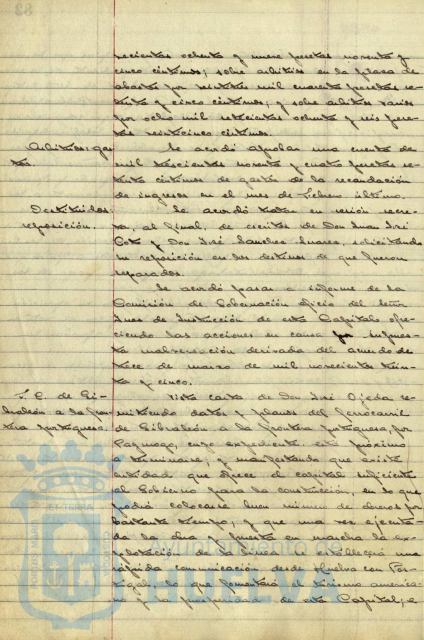 recientas ochenta y nueve pesetas noventa y
cinco céntimos; sobre arbitrios en la plaza de
abastos por veintitres mil cuarenta pesetas se-
tenta y cinco céntimos; y sobre arbitrios varios
por ocho mil setecientos ochenta y seis pese-
tas veinticinco céntimos.
Arbitrios: gas-
tos.
Se acordó aprobar una cuenta de
mil trescientas noventa y cuatro pesetas se-
tenta céntimos de gastos de la recaudación
de ingresos en el mes de Febrero último.
Destituidos:
reposición.
Se acordó tratar en sesión secre-
ta, al final, de escritos de Don Juan José
Coto y Don José Sanchez Suarez, solicitando
su reposición en los destinos de que fueron
separados.
Se acordó pasar a informe de la
Comisión de Gobernación oficio del Señor
Juez de Instrucción de esta Capital ofre-
ciendo las acciones en causa por supues-
ta malversación derivada del acuerdo de
trece de marzo de mil novecientos trein-
ta y cinco.
F. C. de Gi-
braleón a la fron-
tera portuguesa.
Vista carta de Don José Ojeda re-
mitiendo datos y planos del ferrocarril
de Gibraleón a la frontera portuguesa, por
Paymogo, cuyo expediente está próximo
a terminarse, y manifestando que existe
entidad que ofrece el capital suficiente
al Gobierno para la construcción, en lo que
podrá colocarse buen número de obreros por
bastante tiempo, y que una vez ejecuta-
da la obra y puesta en marcha la ex-
plotación de la línea establecerá una
rápida comunicación desde Huelva con Por-
tugal, lo que fomentará el turismo america-
no y la prosperidad de esta Capital; e
Ayuntamiento de
HUELVA